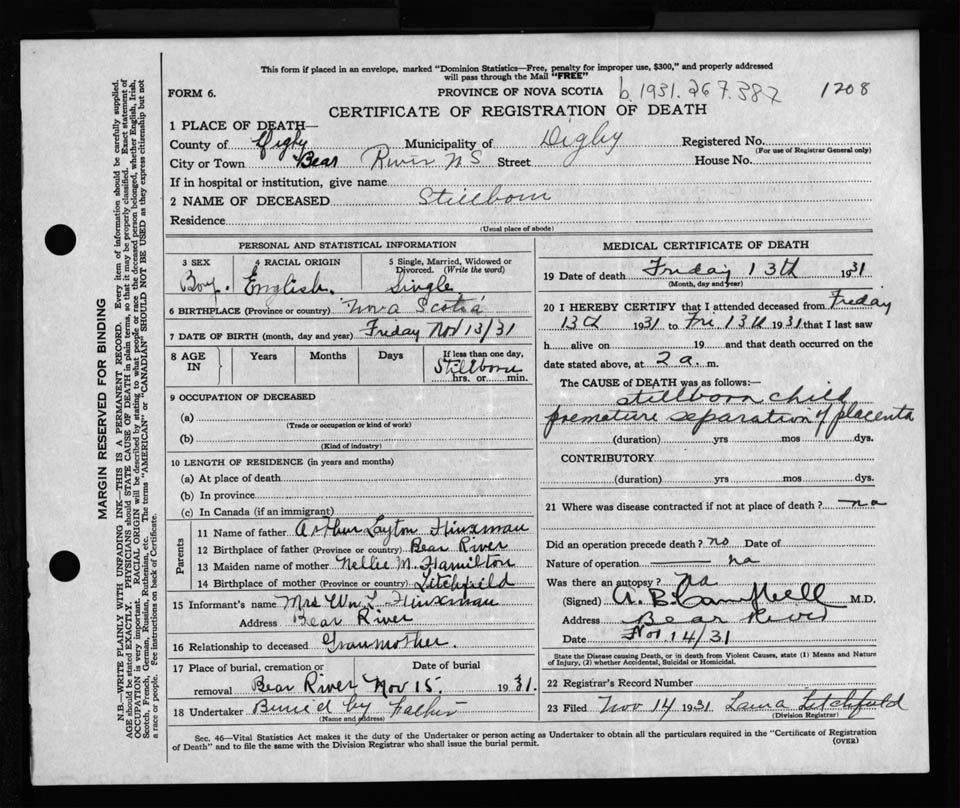 This form if placed in an envelope, marked "Dominion Statistics—Free, penalty for improper use, $300," and properly addressed
will pass through the Mail "FREE"
FORM 6. PROVINCE OF NOVA SCOTIA b. 1931. 267.387 1208
CERTIFICATE OF REGISTRATION OF DEATH
1 PLACE OF DEATH—
County of Digby Municipality of Digby Registered No.
(For use of Registrar General only)
City or Town Bear River N S Street House No.
If in hospital or institution, give name
2 NAME OF DECEASED Stillborn
Residence
(Usual place of abode)
PERSONAL AND STATISTICAL INFORMATION
3 SEX 4 RACIAL ORIGIN 5 Single, Married, Widowed or Divorced. (Write the word)
Boy. English. Single
6 BIRTHPLACE (Province or country) Nova Scotia
7 DATE OF BIRTH (month, day and year) Friday Nov 13/31
8 AGE IN Years Months Days If less than one day,
Stillborn
hrs. or min.
9 OCCUPATION OF DECEASED
(a)
(Trade or occupation or kind of work)
(b)
(Kind of industry)
10 LENGTH OF RESIDENCE (in years and months)
(a) At place of death
(b) In province
(c) In Canada (if an immigrant)
Parents
11 Name of father Arthur Layton Hinxman
12 Birthplace of father (Province or country) Bear River
13 Maiden name of mother Nellie M. Hamilton
14 Birthplace of mother (Province or country) Litchfield
15 Informant's name Mrs Wm L. Hinxman
Address Bear River
16 Relationship to deceased Granmother.
17 Place of burial, cremation or Date of burial
removal Bear River Nov 15. 1931.
18 Undertaker Buried by Father
(Name and address)
MEDICAL CERTIFICATE OF DEATH
19 Date of death Friday 13th 1931
(Month, day and year)
20 I HEREBY CERTIFY that I attended deceased from Friday
13th 1931 to Fri 13th 1931 that I last saw
h alive on 19 and that death occurred on the
date stated above, at 2 a. m.
The CAUSE of DEATH was as follows:—
stillborn child
premature separation of placenta
(duration) yrs mos dys.
CONTRIBUTORY
(duration) yrs mos dys.
21 Where was disease contracted if not at place of death? na
Did an operation precede death? no Date of
Nature of operation na
Was there an autopsy? na
(Signed) A. B. Campbell M.D.
Address Bear River
Date Nov 14/31
State the Disease causing Death, or in death from Violent Causes, state (1) Means and Nature
of Injury, (2) whether Accidental, Suicidal or Homicidal.
22 Registrar's Record Number
23 Filed Nov 14 1931 Laura Litchfield
(Division Registrar)
Sec. 46—Vital Statistics Act makes it the duty of the Undertaker or person acting as Undertaker to obtain all the particulars required in the "Certificate of Registration
of Death" and to file the same with the Division Registrar who shall issue the burial permit. (OVER)
MARGIN RESERVED FOR BINDING
N.B.—WRITE PLAINLY WITH UNFADING INK—THIS IS A PERMANENT RECORD. Every item of information should be carefully supplied.
AGE should be stated EXACTLY. PHYSICIANS should STATE CAUSE OF DEATH in plain terms, so that it may be properly classified. Exact statement of
OCCUPATION is very important. RACIAL ORIGIN will be described by stating to what people or race the deceased person belonged, whether English, Irish,
Scotch, French, German, Russian, Ruthenian, etc. The terms "AMERICAN" or "CANADIAN" SHOULD NOT BE USED as they express citizenship but not
a race or people. See instructions on back of Certificate.